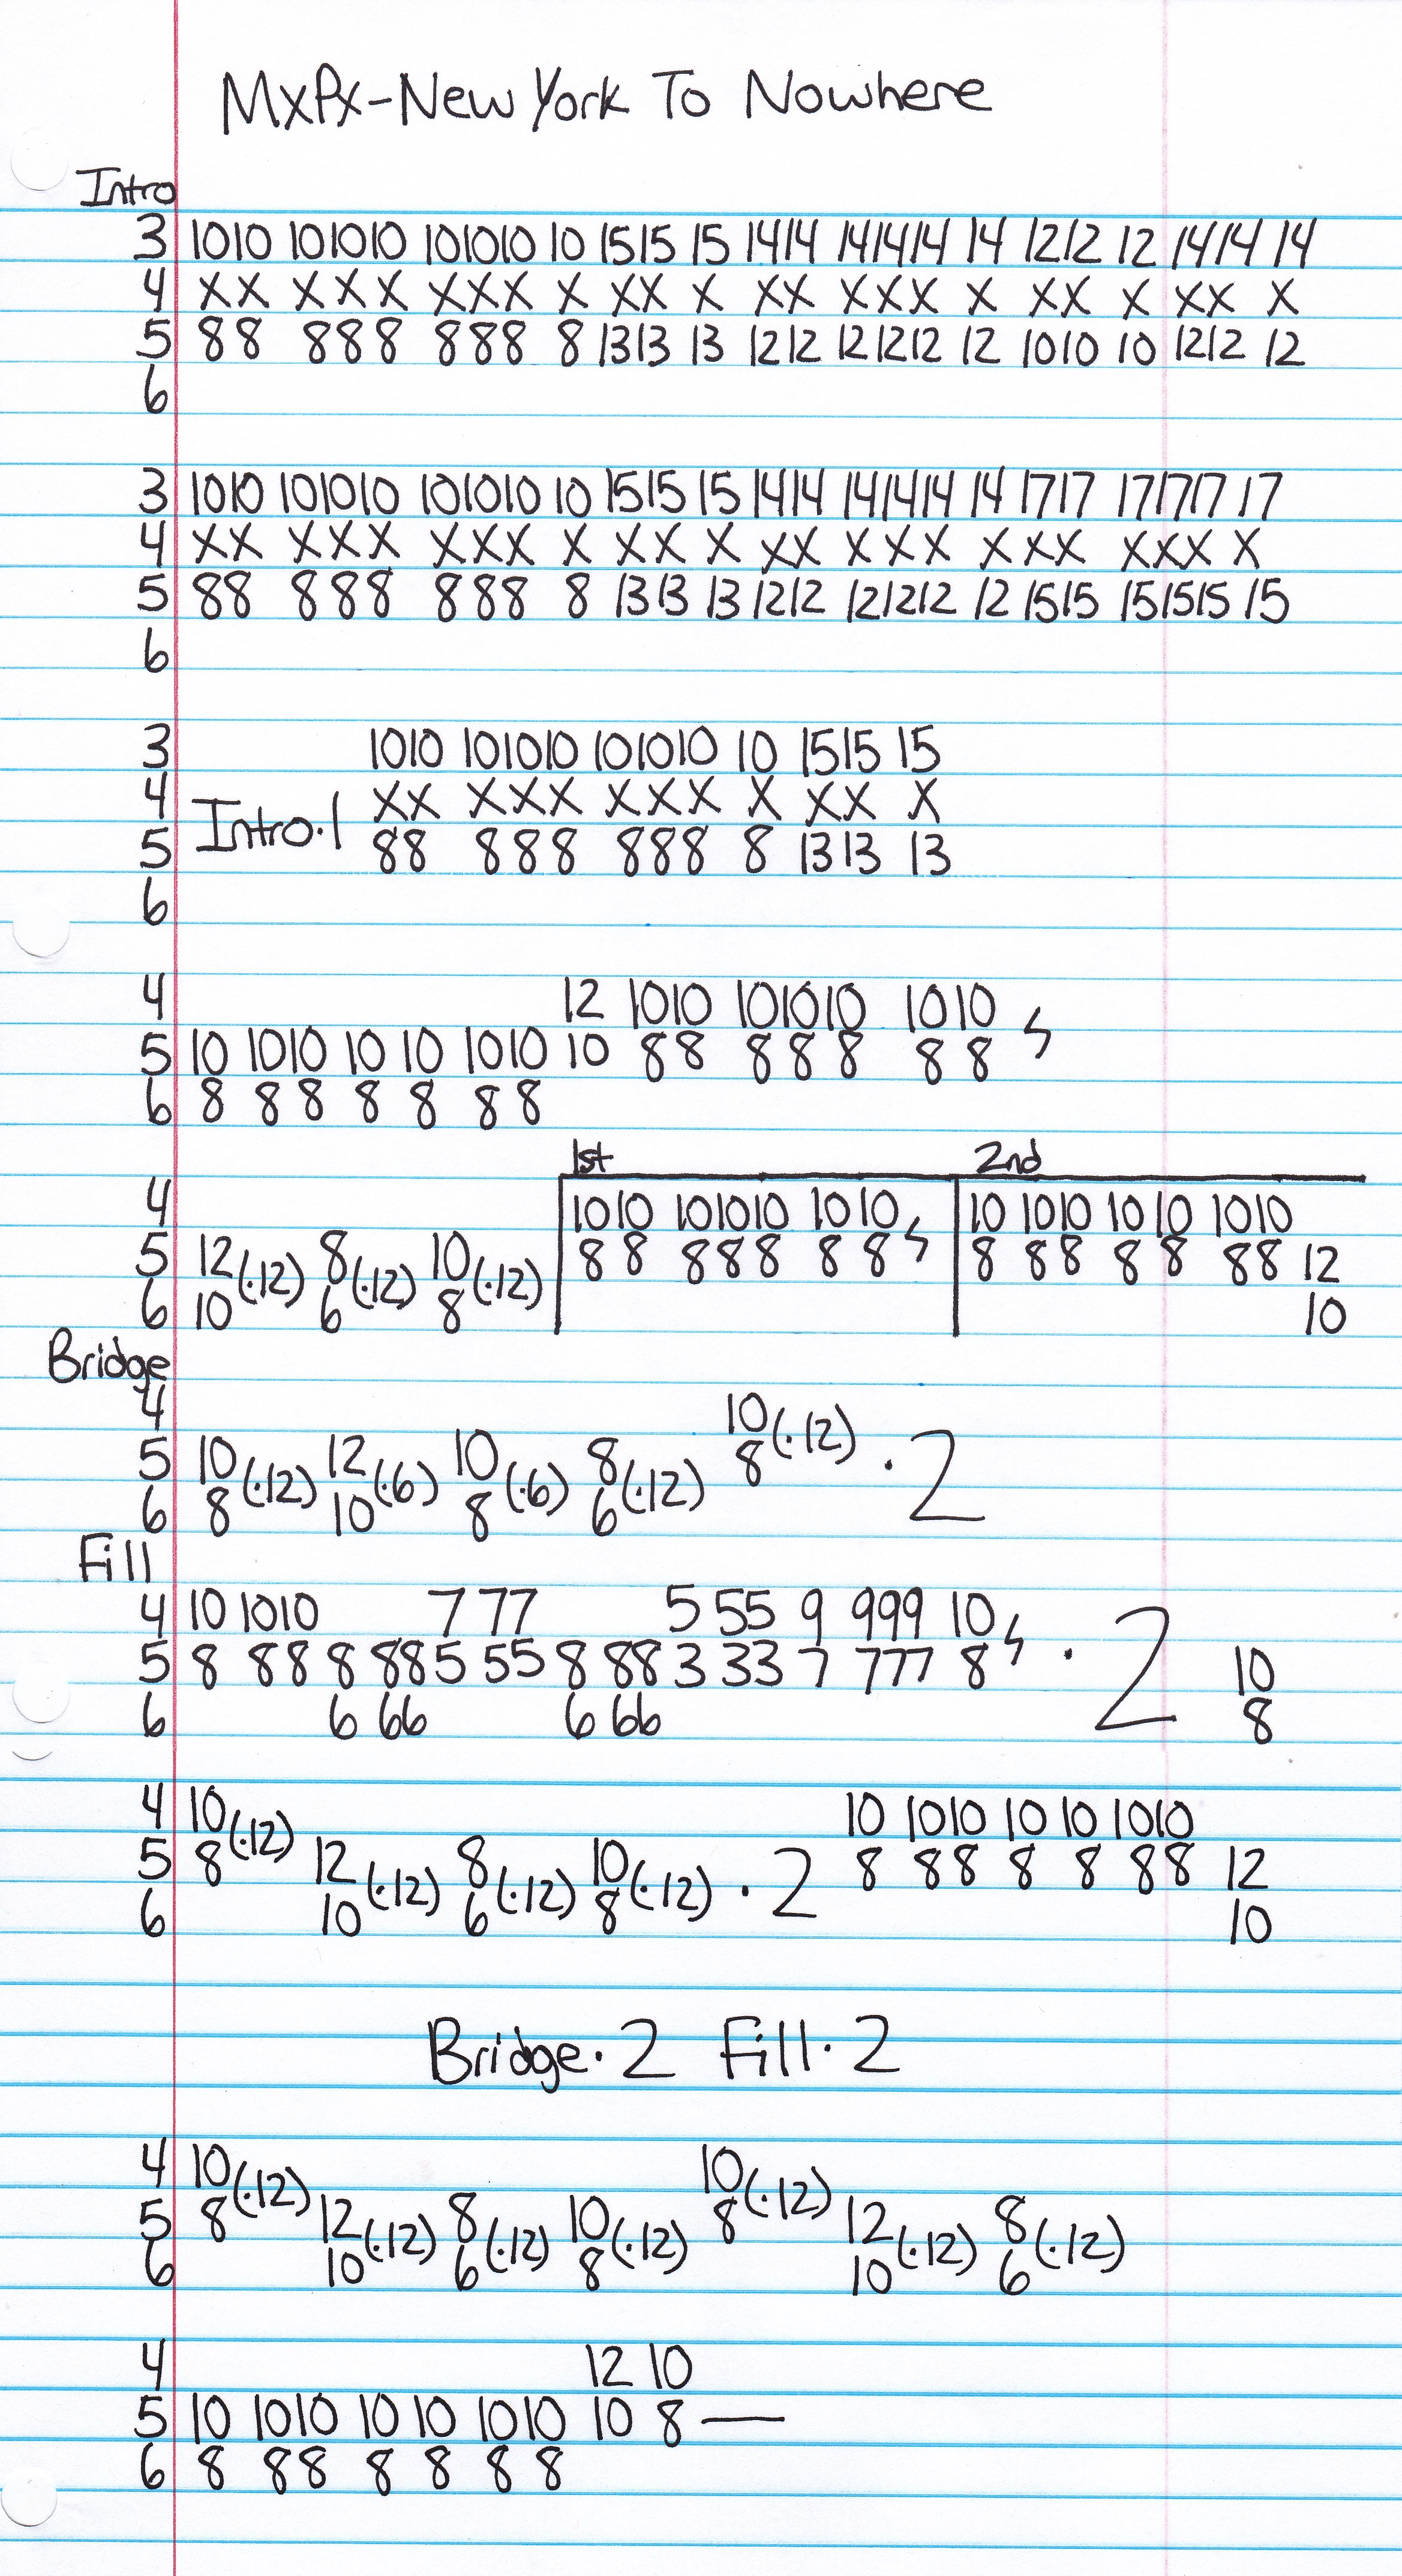 MxPx-New York To Nowhere
Intro
3 1010 101010 101010 10 1515 15 1414 141414 14 1212 12 1414 14
4 XX XXX XXX X XX X XX XXX X XX X XX X
5 88 888 888 8 1313 13 1212 121212 12 1010 10 1212 12
6
3 1010 101010 101010 10 1515 15 1414 141414 14 1717 171717 17
4 XX XXX XXX X XX X XX XXX X XX XXX X
5 88 888 888 8 1313 13 1212 121212 12 1515 151515 15
6
3 1010 101010 101010 10 1515 15
4 XX XXX XXX X XX X
Intro·1
5 88 888 888 8 1313 13
6
4 12 1010 101010 1010
5 10 1010 10 10 1010 10 88 888 88
6 8 88 8 8 88
1st 2nd
4 1010 101010 1010 10 1010 10 10 1010
5 12 (·12) 8 (·12) 10 (·12) 88 888 88 8 88 8 8 88 12
6 10 6 8 10
Bridge
4 10 (·12)
5 10 (·12) 12 (·6) 10 (·6) 8 (·12) 8 ·2
6 8 10 8 6
Fill
4 10 1010 7 77 5 55 9 999 10
5 8 88 8 88 5 55 8 88 3 33 7 777 8 ·2 10
6 6 66 6 66 8
4 10 (·12) 10 1010 10 10 1010
5 8 12 (·12) 8 (·12) 10 (·12) ·2 8 88 8 8 88 12
6 10 6 8 10
Bridge·2 Fill·2
4 10 (·12) 10 (·12)
5 8 12 (·12) 8 (·12) 10 (·12) 8 12 (·12) 8 (·12)
6 10 6 8 10 6
4 12 10
5 10 1010 10 10 1010 10 8 —
6 8 88 8 8 88